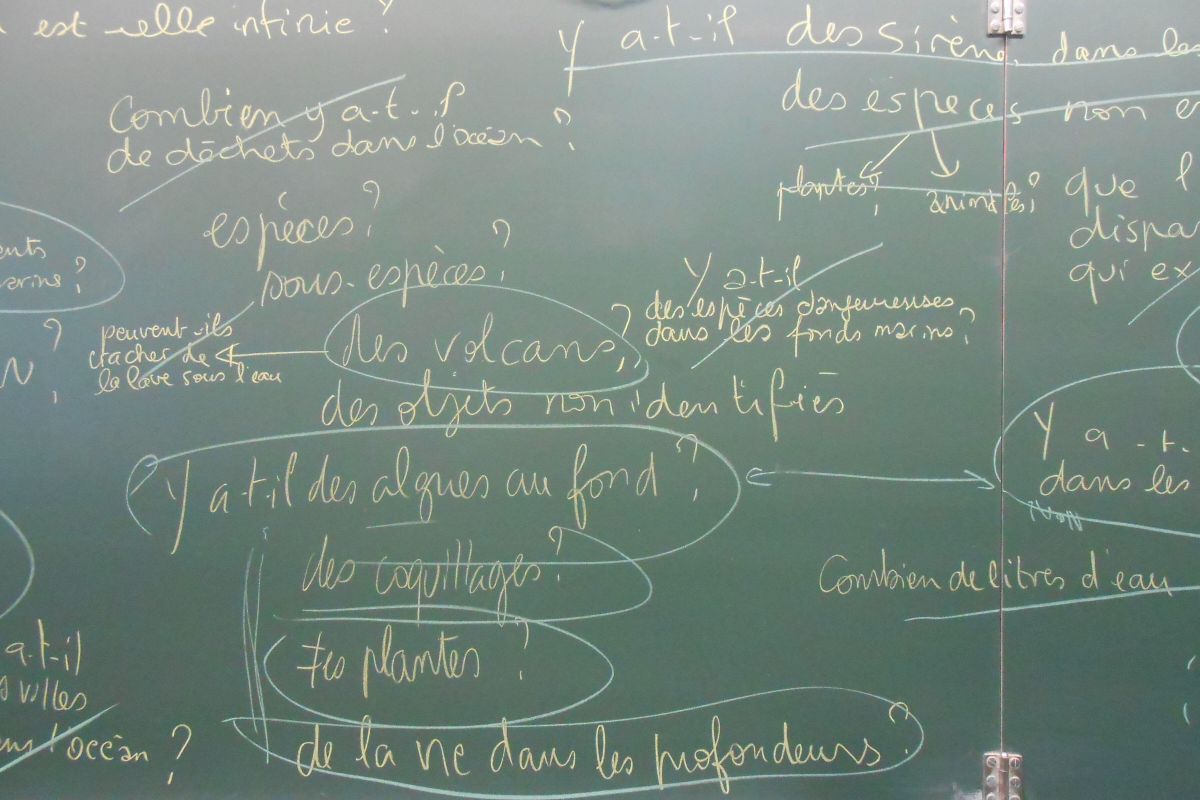 est-elle infinie ?
Y a-t-il des sirène dans les
Combien y a-t-il
de déchets dans l'océan ?
des espèces non e
plantes ? animales ?
que l
dispa
qui ex
espèces ?
sous-espèces ?
ents
marins ?
Y a-t-il
des espèces dangeureuses
dans les fonds marins ?
peuvent-ils
cracher de
la lave sous l'eau
des volcans ?
des objets non identifiés
Y a-t-il des algues au fond ?
Y a-t-
dans les
Non
des coquillages ?
Combien de litres d'eau
≠es plantes ?
a-t-il
s villes
l'océan ?
de la vie dans les profondeurs ?